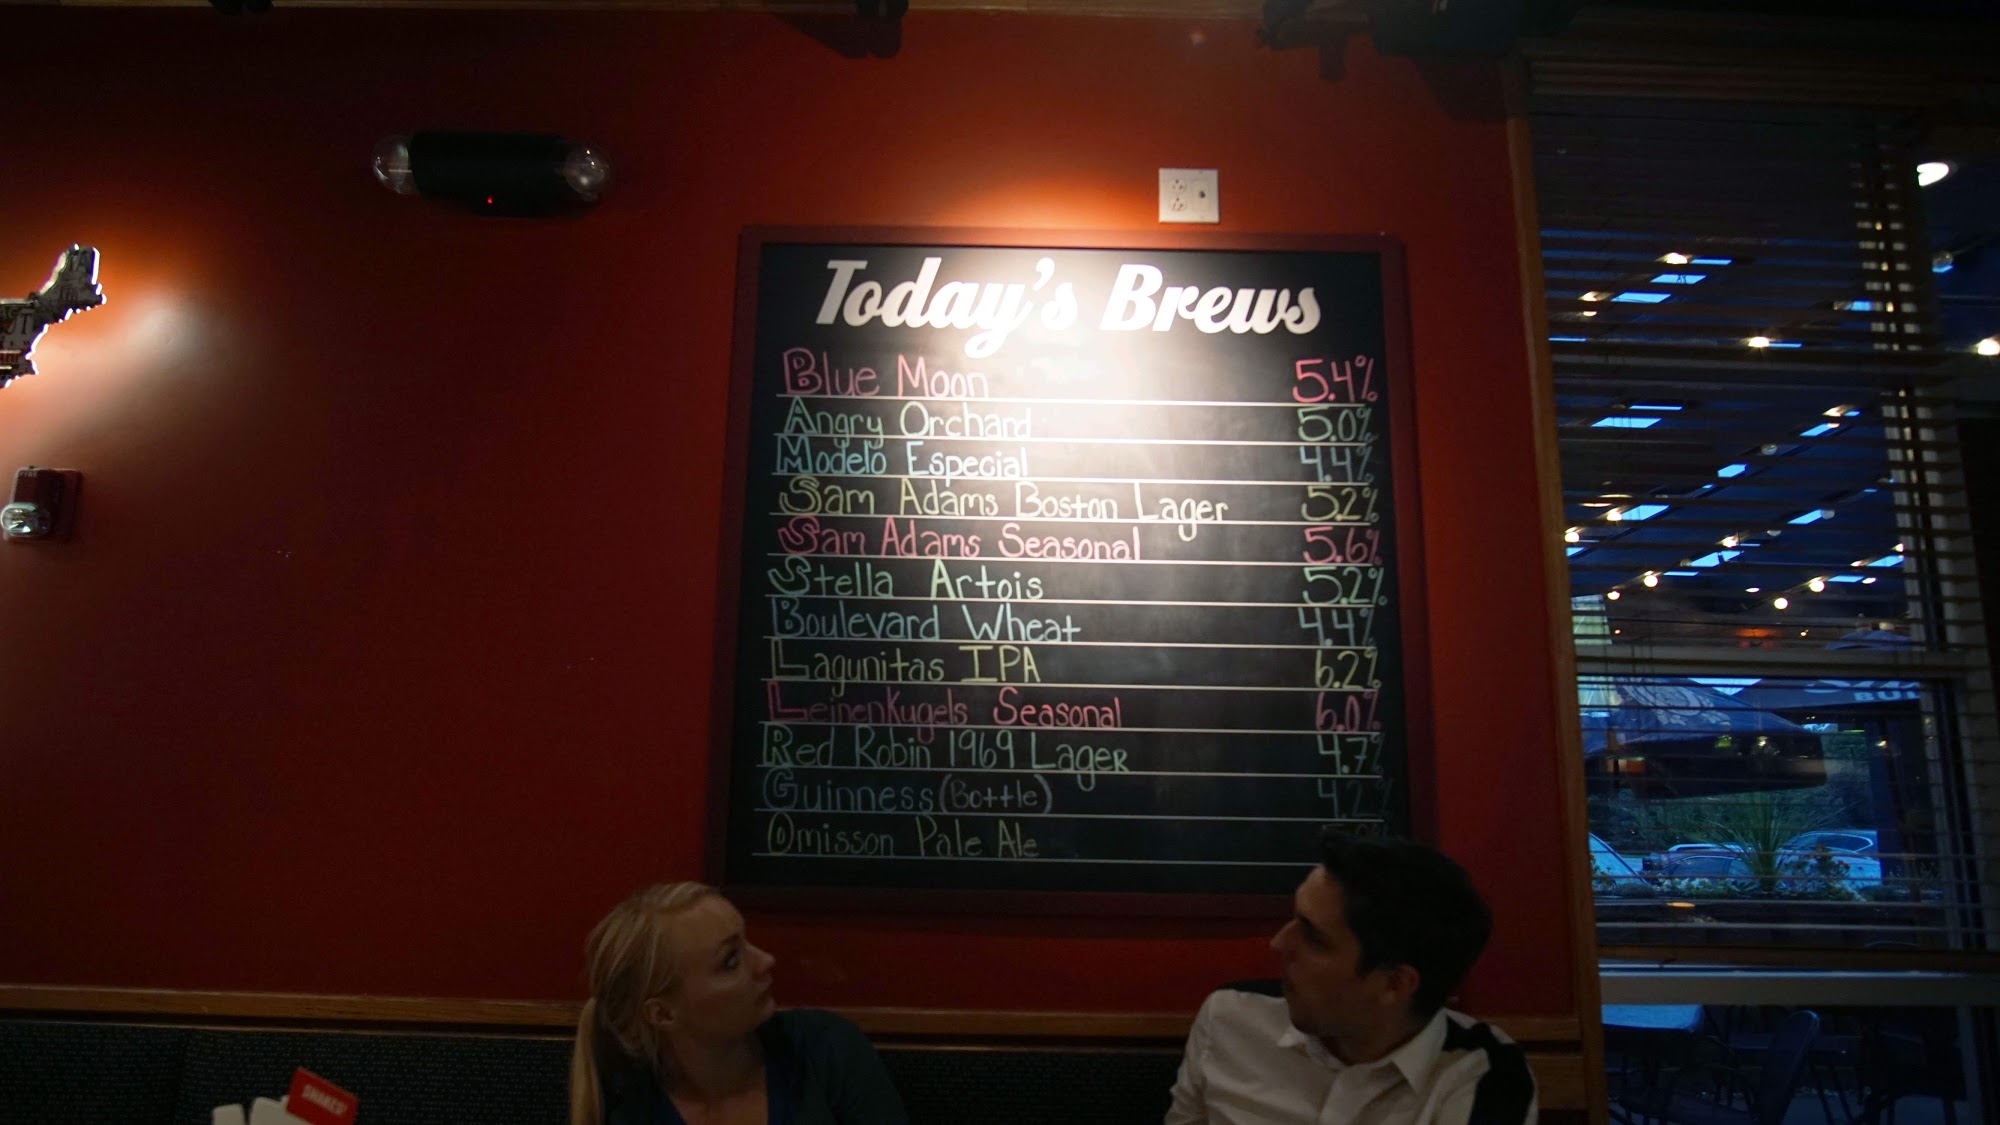 Today's Brews
Blue Moon 5.4%
Angry Orchard 5.0%
Modelo Especial 4.4%
Sam Adams Boston Lager 5.2%
Sam Adams Seasonal 5.6%
Stella Artois 5.2%
Boulevard Wheat 4.4%
Lagunitas IPA 6.2%
Leinenkugels Seasonal 6.0%
Red Robin 1969 Lager 4.7%
Guinness (Bottle) 4.2%
Omisson Pale Ale
SHAKES!
FIRE